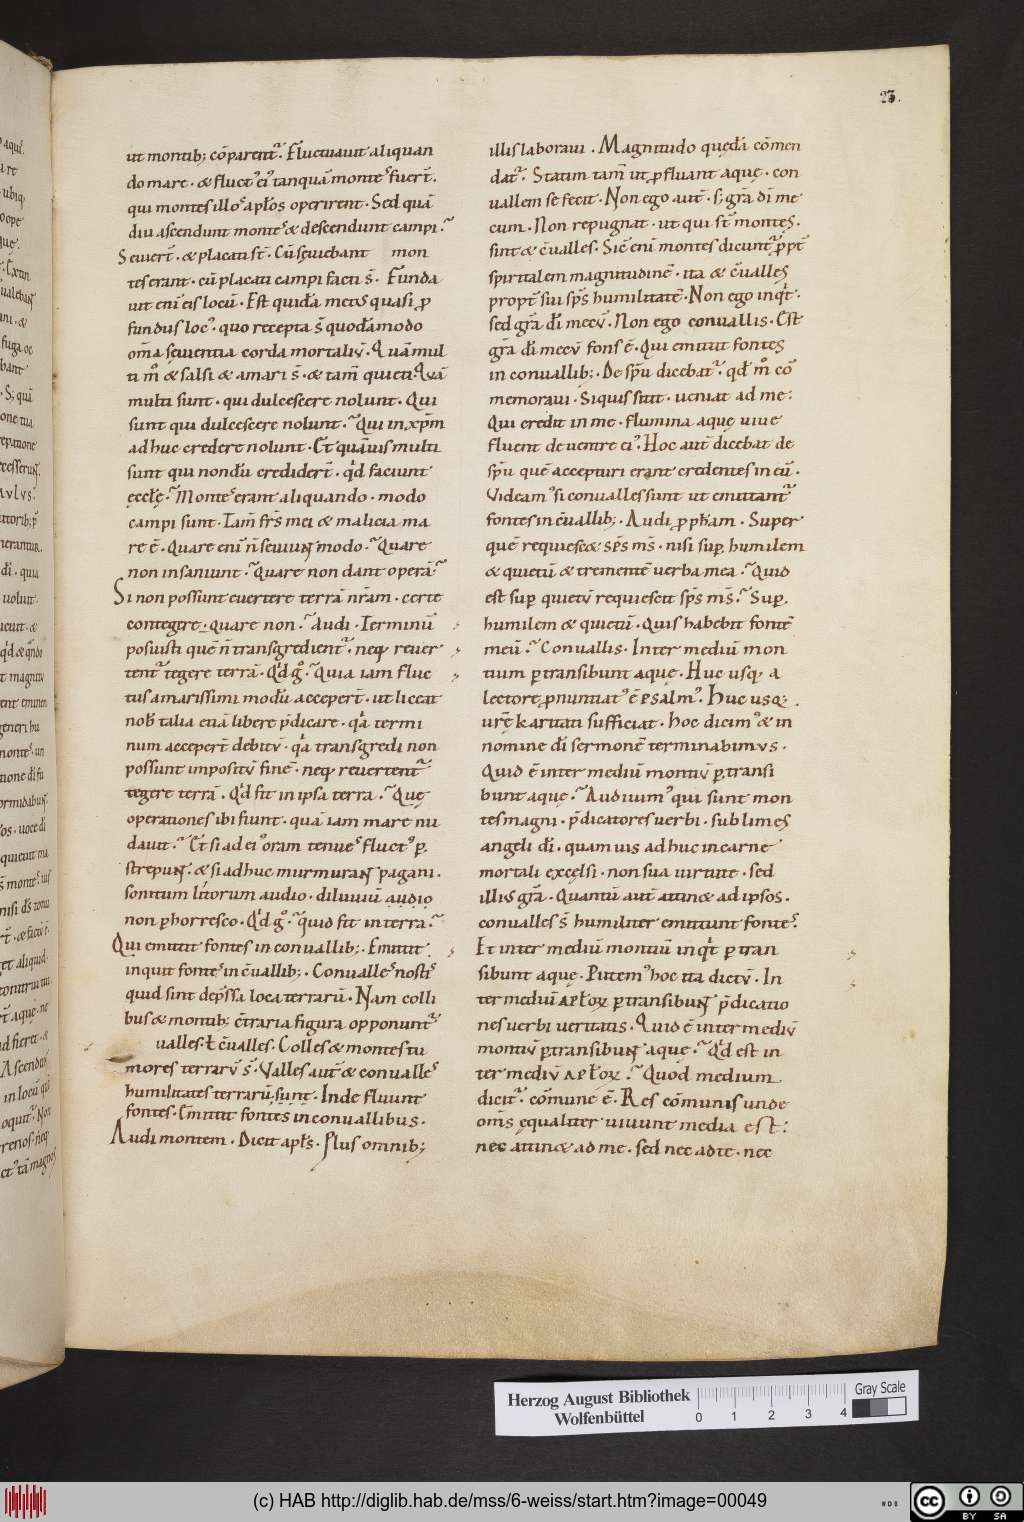 23.
ut montib; cōparent᷑. Fluctuauit aliquan
do mare · & fluct᷒ ei᷒ tanquā monteˢ fuerт̄.
qui montes illoˢ apłos operirent · Sed quā
diu ascendunt monteˢ & descendunt campi ·
Seuierт̄ · & placati sт̄ · Cū sęuiebant mon
tes erant · cū placati campi facti s̄ · Funda
uit eni᷒ eis locū · Est quidā metuˢ quasi ꝓ
fundus loc᷒ · quo recepta s̄ quodāmodo
om̄a seuientia corda mortaliū · Quā mul
ti m̊ & salsi & amari s̄ · & tam̄ quieti · Quā
multi sunt · qui dulcescere nolunt · Qui
sunt qui dulcescere nolunt · Qui in xp̄m
adhuc credere nolunt · Et quāuis multi
sunt qui nondū crediderт̄ · qd̄ faciunt
ęcclę̄ · Monteˢ erant aliquando · modo
campi sunt · Iam frs̄ mei & malicia ma
re ē · Quare eni᷒ n̄ seuiunt modo · Quare
non insaniunt · Quare non dant operā
Si non possunt euertere terrā nr̄am · certe
contegere · quare non · Audi · Terminū
posuisti quē n̄ transgredient᷑ · neq; reuer
tent᷑ tegere terrā · Qd̄ g̊ · Quia iam fluc
tus amarissimi modū acceperт̄ · ut liceat
nob̄ talia etiā libere p̄dicare · q̇a termi
num acceperт̄ debitū · q̇a transgredi non
possunt impositū finē · neq; reuertent᷑
tegere terrā · Qd̄ fit in ipsa terra · Quę
operationes ibi fiunt · quā iam mare nu
dauit · Etsi ad ei᷒ oram tenueˢ fluct᷒ ꝑ
strepunt · & si adhuc murmurant pagani ·
sonitum litorum audio · diluuiū audio
non ꝑhorresco · Qd̄ g̊ · quid fit in terra
Qui emittit fontes in conuallib; · Emittit ·
inquit fonteˢ in c̄uallib; · Conualleˢ nostiˢ
quid sint dep̄ssa loca terrarū · Nam colli
bus & montib; c̄traria figura opponunt᷑
ualles · ł c̄ualles · Colles & montes tu
mores terrarū s̄ · Valles aut̄ & conualleˢ
humilitates terrarū sunt · Inde fluunt
fontes · Emittit fontes in conuallibus ·
Audi montem · Dicit apłs · Plus omnib;
illis laboraui · Magnitudo quędā cōmen
dat᷑ · Statim tam̄ ut ꝓfluant aquę · con
uallem se fecit · Non ego aut̄ · s; gr̄a dī me
cum · Non repugnat · ut qui sт̄ montes ·
sint & c̄ualles · Sic̄ eni᷒ montes dicunt᷑ ꝓpт̄
spiritalem magnitudinē · ita & c̄ualles
propт̄ sui sp̄s humilitatē · Non ego inq̇t ·
sed gr̄a dī mecū · Non ego conuallis · Est
gr̄a dī mecū fons ē · Qui emittit fontes
in conuallib; · De sp̄u dicebat᷑ · qd̄ m̊ cō
memoraui · Siquis sitit · ueniat ad me ·
Qui credit in me · flumina aquę uiuę
fluent de uentre ei᷒ · Hoc aut̄ dicebat de
sp̄u quē accepturi erant credentes in eū ·
Videam᷒ si conualles sunt ut emittant᷑
fontes in c̄uallib; · Audi ꝓph̄am · Super
quē requiesc& sps̄ ms̄ · nisi suꝑ humilem
& quietū & trementē uerba mea · Quid
est suꝑ quietū requiescit sps̄ ms̄ · Suꝑ
humilem & quietū · Quis habebit fontē
meū · Conuallis · Inter mediū mon
tium ꝑtransibunt aquę · Huc usq; a
lectore ꝓnuntiat᷒ ē psalm᷒ · Huc usq;
ur̄ę karitati sufficiat · hoc dicim᷒ & in
nomine dī sermonē terminabimus ·
Quid ē inter mediū montiū ꝑtransi
bunt aquę · Audiuim᷒ qui sunt mon
tes magni · p̄dicatores uerbi · sublimes
angeli dī · quamuis adhuc in carne
mortali excelsi · non sua uirtute · sed
illius gr̄a · Quantū aut̄ attinet ad ipsos ·
conualles s̄ humiliter emittunt fonteˢ
Et inter mediū montiū inq̇t ꝑtran
sibunt aquę · Putem᷒ hoc ita dictū · In
ter mediū apłoꝝ ꝑtransibunt p̄dicatio
nes uerbi ueritatis · Quid ē inter mediū
montiū ꝑtransibunt aquę · Qd̄ est in
ter mediū apłoꝝ · Quod medium
dicit᷑ · cōmune ē · Res cōmunis unde
om̄s ęqualiter uiuunt media est ·
nec attinet ad me · sed nec ad te · nec
Herzog August Bibliothek
Wolfenbüttel
0 1 2 3 4
Gray Scale
(c) HAB http://diglib.hab.de/mss/6-weiss/start.htm?image=00049
cc BY SA